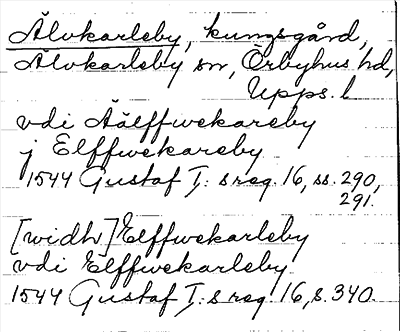 Älvkarleby, kungsgård,
Älvkarleby sn, Örbyhus hd,
Upps. l
vdi Äälffwekareby
j Elffwekareby
1544 Gustaf I: s reg. 16, ss. 290,
291.
[widh] Elffwekarleby
vdi Elffwekarleby
1544 Gustaf I: s reg. 16, s. 340.